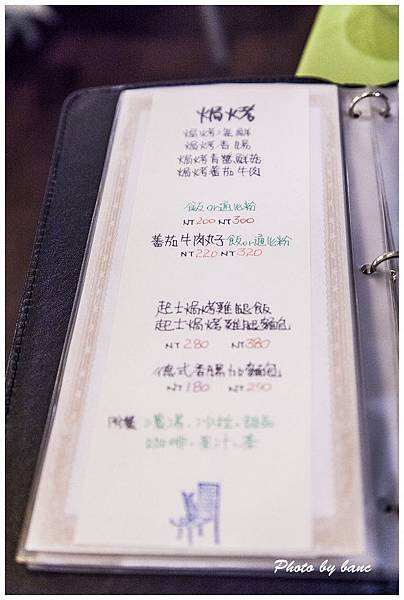 焗烤
焗烤海鮮
焗烤香腸
焗烤青醬鮮菇
焗烤蕃茄牛肉
飯or通心粉
NT200 NT300
蕃茄牛肉丸子飯or通心粉
NT220 NT320
起士焗烤雞腿飯
起士焗烤雞腿麵包
NT280 NT380
德式香腸加麵包
NT180 NT290
附餐 濃湯、沙拉、甜品
咖啡、果汁、茶
Photo by banc